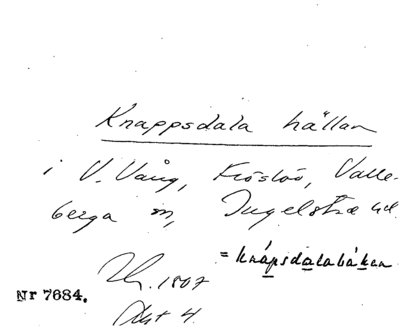 Knappsdala hällan
i V. Vång, Köslöv, Valle-
berga sn, Ingelstads hd.
= knápsdalabákan
1807
Nr 7684. Akt 4.